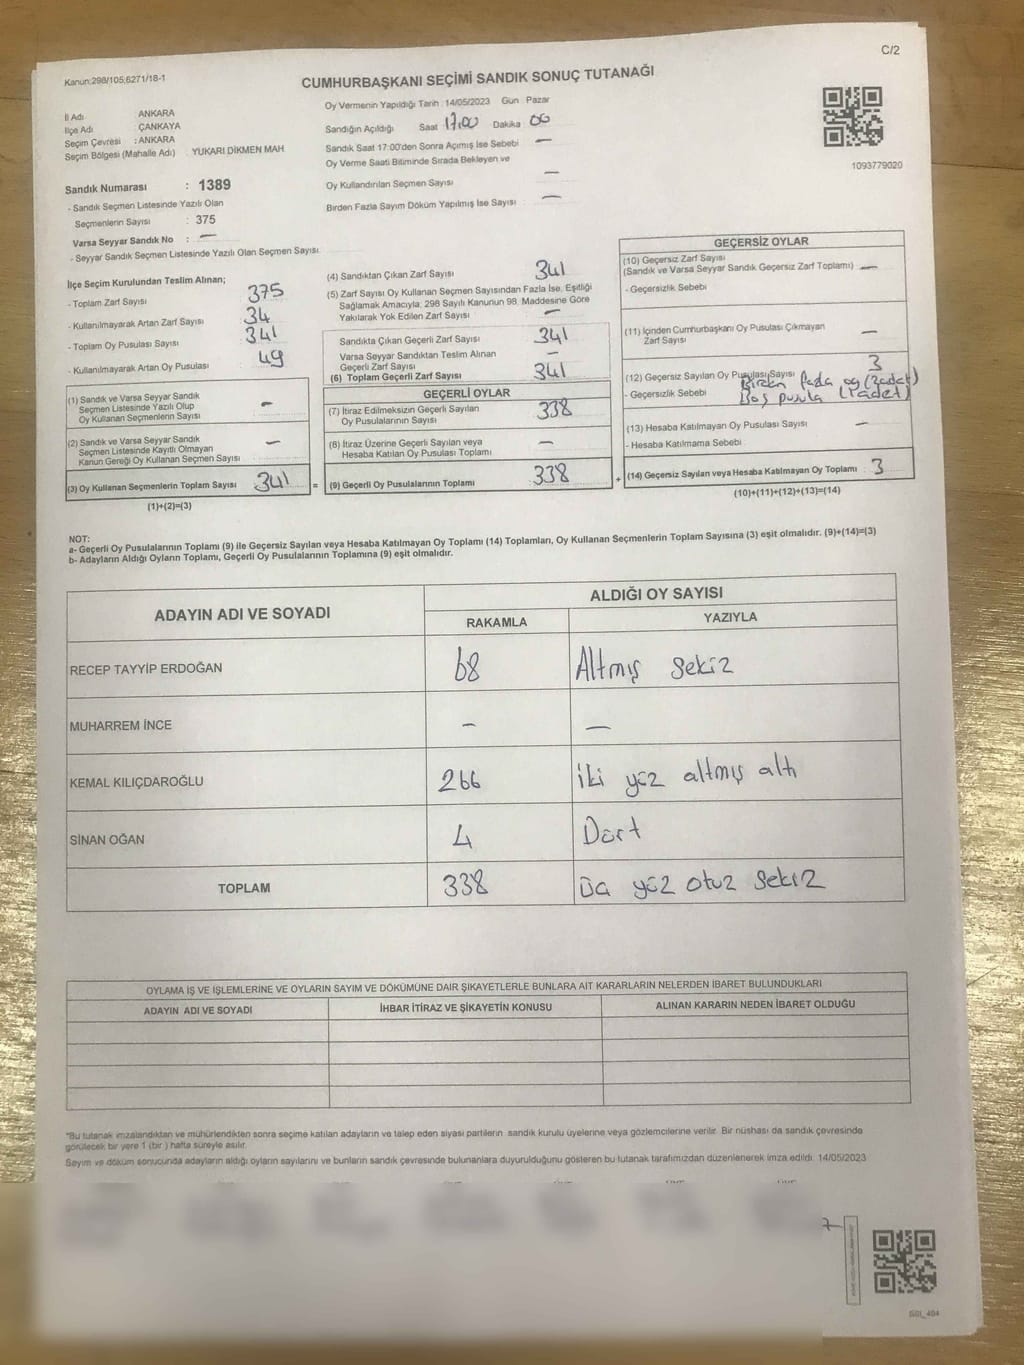 C/2
Kanun:298/105;6271/18-1
CUMHURBAŞKANI SEÇİMİ SANDIK SONUÇ TUTANAĞI
İl Adı ANKARA
İlçe Adı ÇANKAYA
Seçim Çevresi : ANKARA
Seçim Bölgesi (Mahalle Adı) YUKARI DİKMEN MAH
Sandık Numarası : 1389
- Sandık Seçmen Listesinde Yazılı Olan
Seçmenlerin Sayısı : 375
Varsa Seyyar Sandık No : —
- Seyyar Sandık Seçmen Listesinde Yazılı Olan Seçmen Sayısı
Oy Vermenin Yapıldığı Tarih : 14/05/2023 Gün Pazar
Sandığın Açıldığı Saat 17.00 Dakika 00
Sandık Saat 17:00'den Sonra Açımış İse Sebebi —
Oy Verme Saati Bitiminde Sırada Bekleyen ve
Oy Kullandırılan Seçmen Sayısı —
Birden Fazla Sayım Döküm Yapılmış İse Sayısı —
1093779020
İlçe Seçim Kurulundan Teslim Alınan;
- Toplam Zarf Sayısı 375
- Kullanılmayarak Artan Zarf Sayısı 34
- Toplam Oy Pusulası Sayısı 341
- Kullanılmayarak Artan Oy Pusulası 49
(1) Sandık ve Varsa Seyyar Sandık
Seçmen Listesinde Yazılı Olup
Oy Kullanan Seçmenlerin Sayısı -
(2) Sandık ve Varsa Seyyar Sandık
Seçmen Listesinde Kayıtlı Olmayan
Kanun Gereği Oy Kullanan Seçmen Sayısı —
(3) Oy Kullanan Seçmenlerin Toplam Sayısı 341 =
(1)+(2)=(3)
(4) Sandıktan Çıkan Zarf Sayısı 341
(5) Zarf Sayısı Oy Kullanan Seçmen Sayısından Fazla İse, Eşitliği
Sağlamak Amacıyla; 298 Sayılı Kanunun 98. Maddesine Göre
Yakılarak Yok Edilen Zarf Sayısı —
Sandıkta Çıkan Geçerli Zarf Sayısı 341
Varsa Seyyar Sandıktan Teslim Alınan
Geçerli Zarf Sayısı —
(6) Toplam Geçerli Zarf Sayısı 341
GEÇERLİ OYLAR
(7) İtiraz Edilmeksizin Geçerli Sayılan
Oy Pusulalarının Sayısı 338
(8) İtiraz Üzerine Geçerli Sayılan veya
Hesaba Katılan Oy Pusulası Toplamı —
(9) Geçerli Oy Pusulalarının Toplamı 338 +
GEÇERSİZ OYLAR
(10) Geçersiz Zarf Sayısı
(Sandık ve Varsa Seyyar Sandık Geçersiz Zarf Toplamı) —
- Geçersizlik Sebebi
(11) İçinden Cumhurbaşkanı Oy Pusulası Çıkmayan
Zarf Sayısı —
(12) Geçersiz Sayılan Oy Pusulası Sayısı 3
Birden fazla oy (2 adet)
- Geçersizlik Sebebi Boş pusula (1 adet)
(13) Hesaba Katılmayan Oy Pusulası Sayısı —
- Hesaba Katılmama Sebebi
(14) Geçersiz Sayılan veya Hesaba Katılmayan Oy Toplamı 3
(10)+(11)+(12)+(13)=(14)
NOT:
a- Geçerli Oy Pusulalarının Toplamı (9) ile Geçersiz Sayılan veya Hesaba Katılmayan Oy Toplamı (14) Toplamları, Oy Kullanan Seçmenlerin Toplam Sayısına (3) eşit olmalıdır. (9)+(14)=(3)
b- Adayların Aldığı Oyların Toplamı, Geçerli Oy Pusulalarının Toplamına (9) eşit olmalıdır.
ADAYIN ADI VE SOYADI ALDIĞI OY SAYISI
RAKAMLA YAZIYLA
RECEP TAYYİP ERDOĞAN 68 Altmış sekiz
MUHARREM İNCE - —
KEMAL KILIÇDAROĞLU 266 iki yüz altmış altı
SİNAN OĞAN 4 Dört
TOPLAM 338 üç yüz otuz sekiz
OYLAMA İŞ VE İŞLEMLERİNE VE OYLARIN SAYIM VE DÖKÜMÜNE DAİR ŞİKAYETLERLE BUNLARA AİT KARARLARIN NELERDEN İBARET BULUNDUKLARI
ADAYIN ADI VE SOYADI İHBAR İTİRAZ VE ŞİKAYETİN KONUSU ALINAN KARARIN NEDEN İBARET OLDUĞU
*Bu tutanak imzalandıktan ve mühürlendikten sonra seçime katılan adayların ve talep eden siyasi partilerin sandık kurulu üyelerine veya gözlemcilerine verilir. Bir nüshası da sandık çevresinde
görülecek bir yere 1 (bir ) hafta süreyle asılır.
Sayım ve döküm sonucunda adayların aldığı oyların sayılarını ve bunların sandık çevresinde bulunanlara duyurulduğunu gösteren bu tutanak tarafımızdan düzenlenerek imza edildi. 14/05/2023